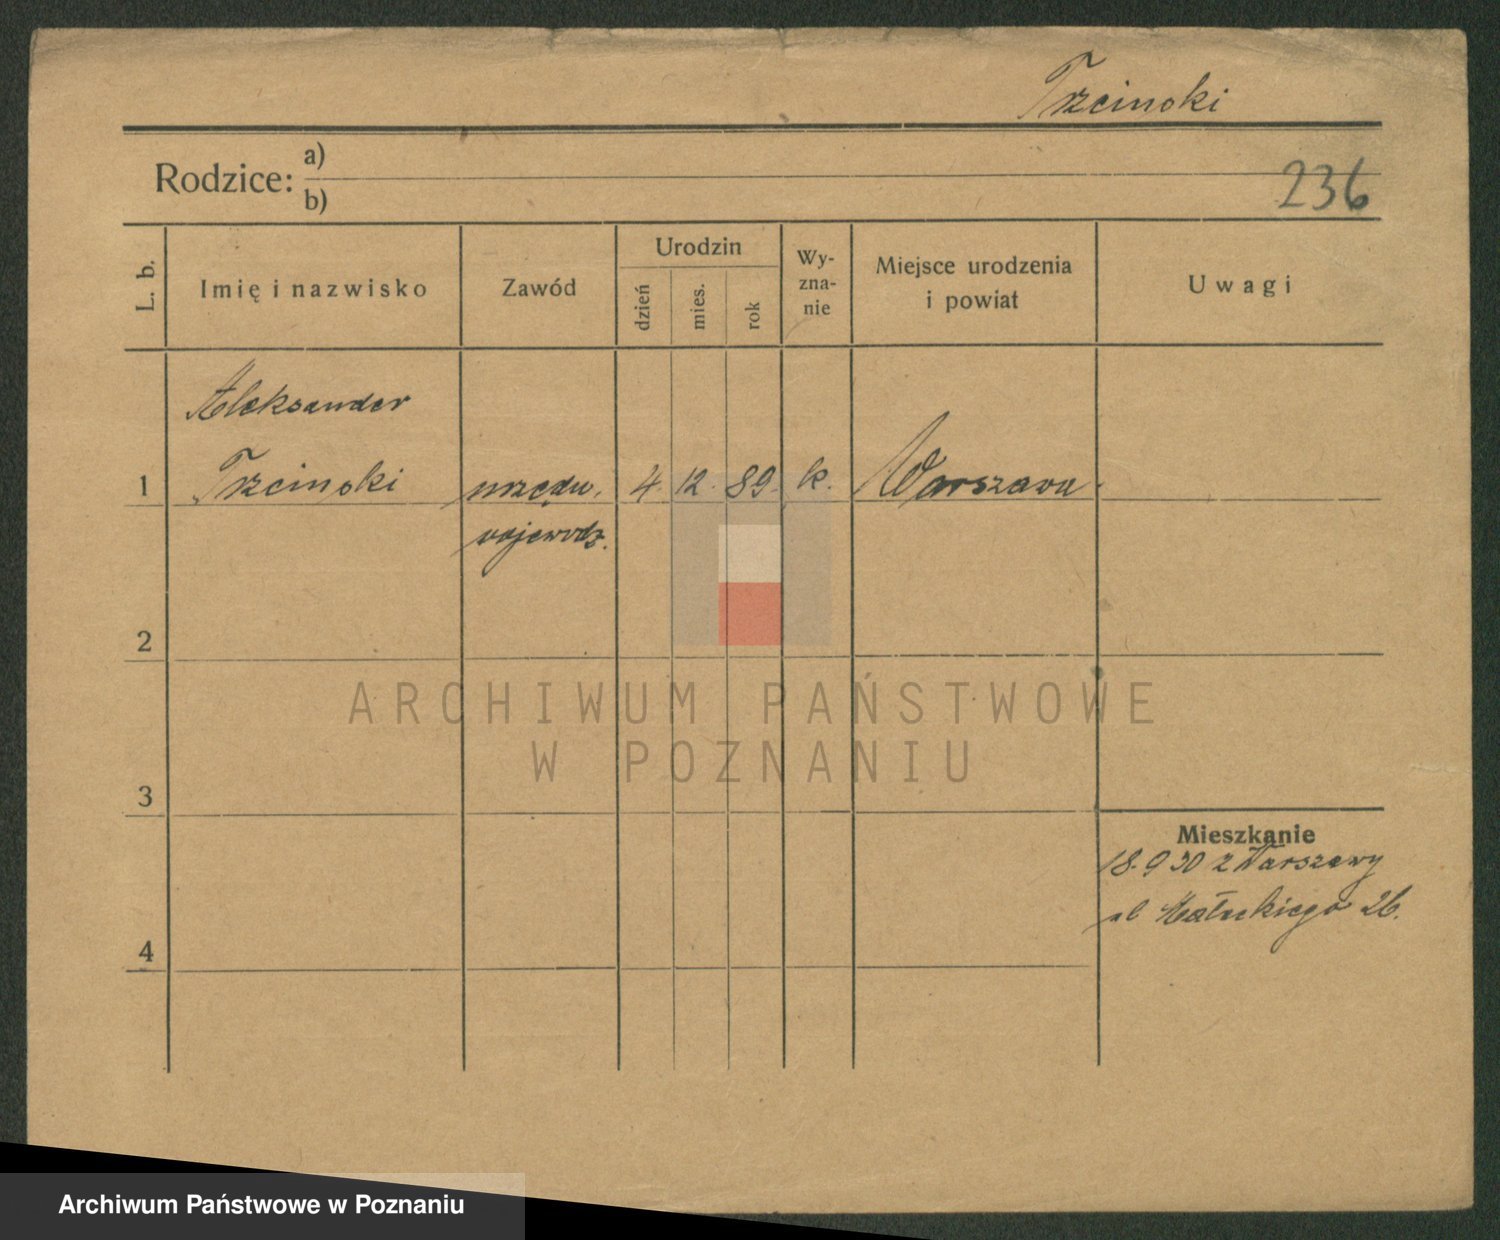 Trzcinski
Rodzice: a)
b)
236
L. b.
Imię i nazwisko
Zawód
Urodzin
dzień
mies.
rok
Wy-
zna-
nie
Miejsce urodzenia
i powiat
Uwagi
Aleksander
1 Trzcinski urzędn. 4. 12. 89. k. Warszawa
wojewodz.
2
ARCHIWUM PAŃSTWOWE
W POZNANIU
3
Mieszkanie
18.9 30 z Warszawy
ul Małeckiego 26.
4
Archiwum Państwowe w Poznaniu